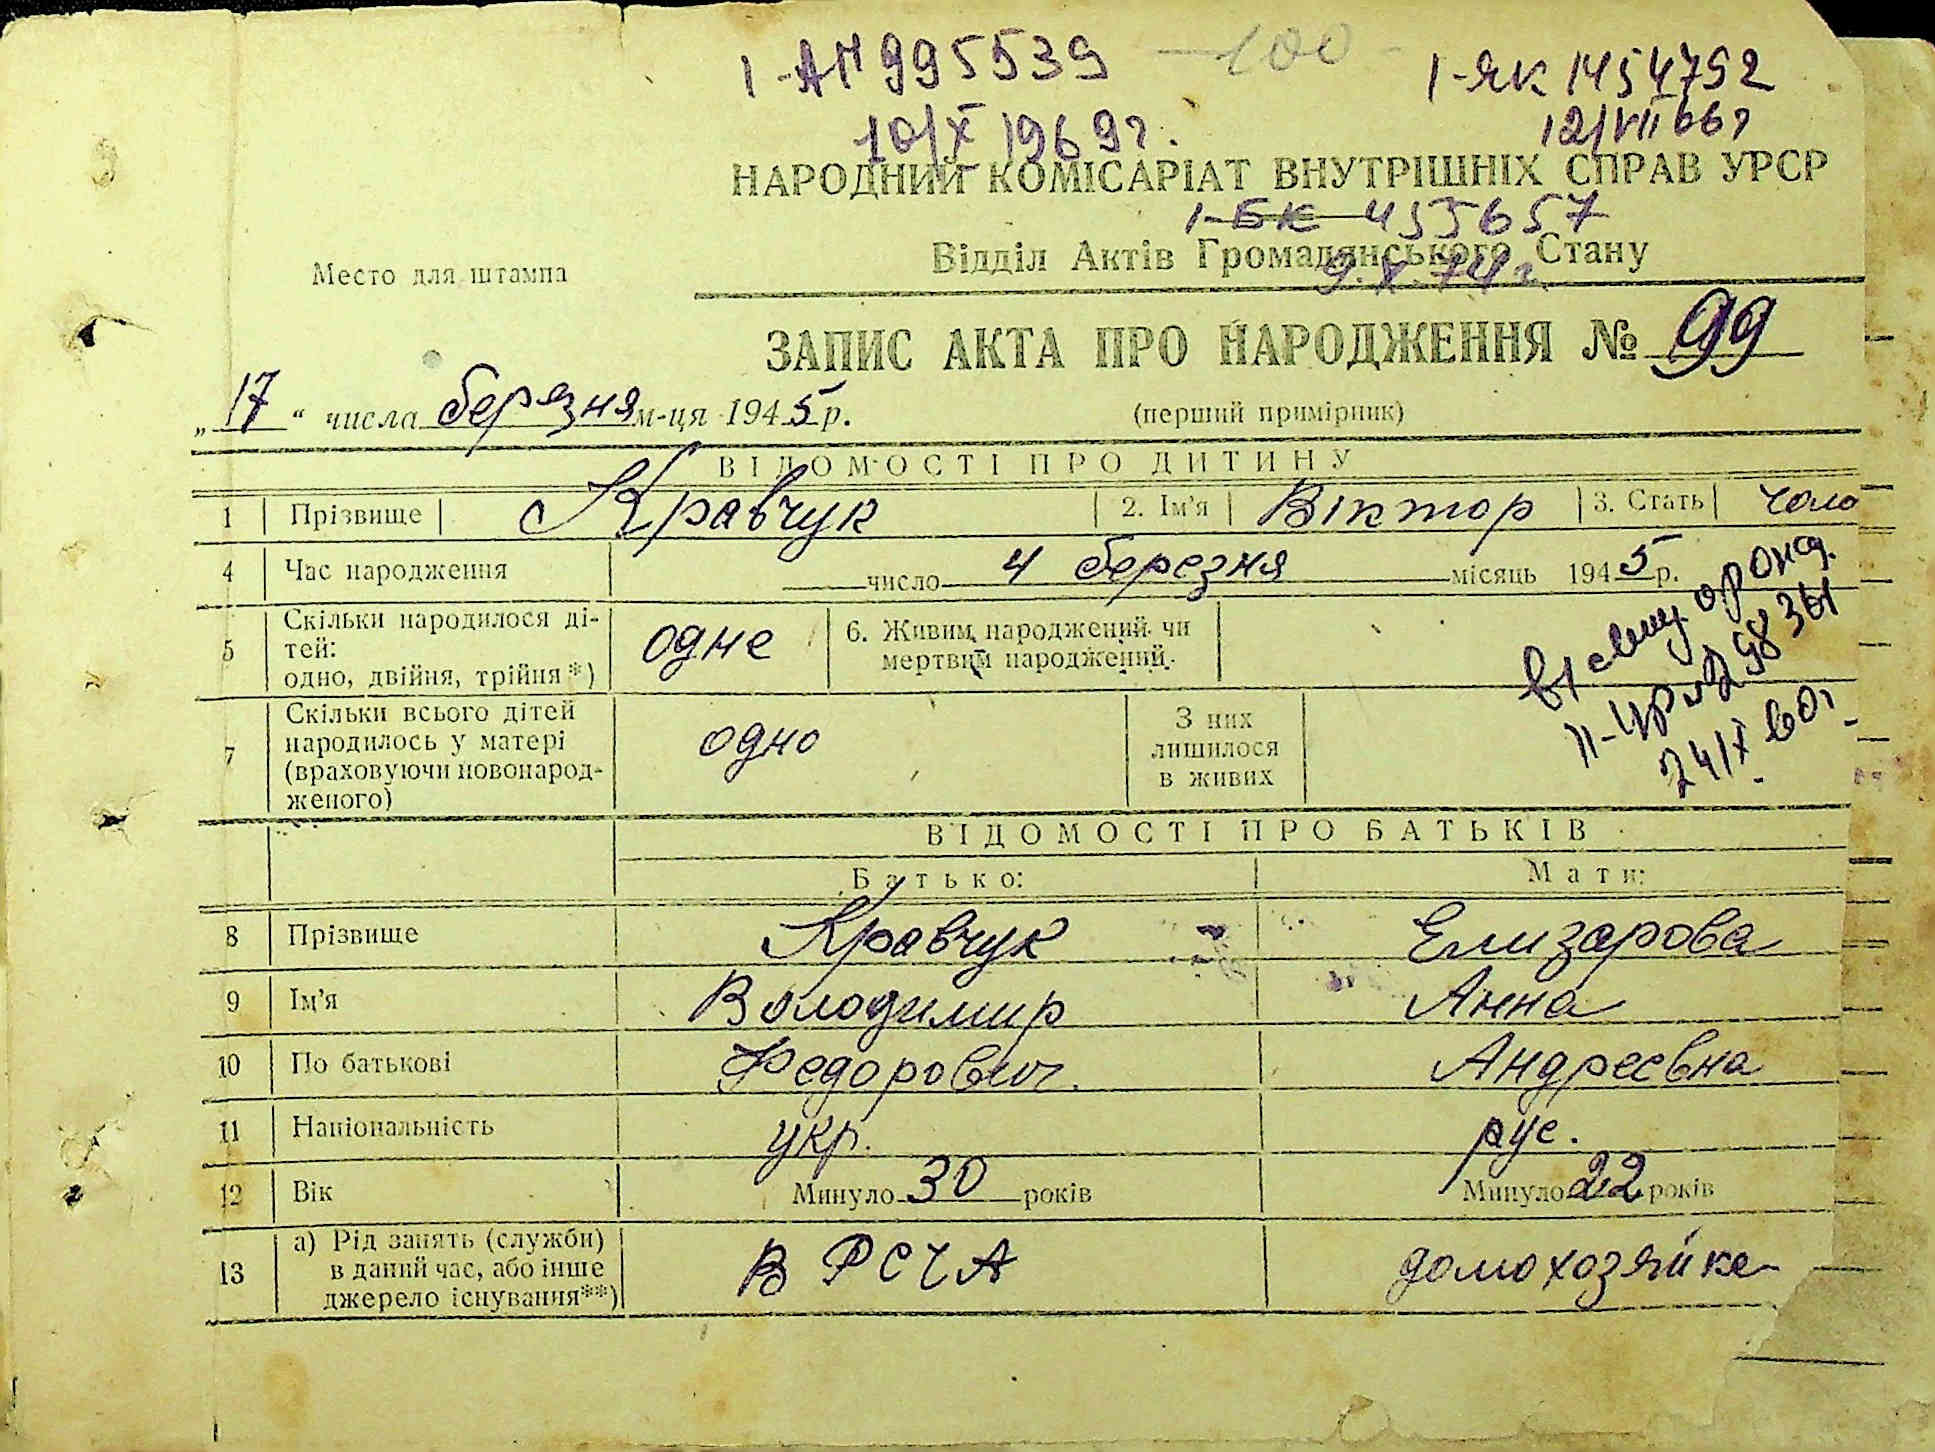 I-АП 995539 —100— I-ЯК 1454752
10/X 1969г. 12/VII 66г
НАРОДНИЙ КОМІСАРІАТ ВНУТРІШНІХ СПРАВ УРСР
I-БК 455657
Відділ Актів Громадянського Стану
9.X.74г
Место для штампа
ЗАПИС АКТА ПРО НАРОДЖЕННЯ № 99
„17“ числа березня м-ця 1945 р. (перший примірник)
ВІДОМОСТІ ПРО ДИТИНУ
1 Прізвище Кравчук 2. Ім'я Віктор 3. Стать чоло
4 Час народження число 4 березня місяць 1945 р.
5 Скільки народилося ді-
тей:
одно, двійня, трійня*) одне 6. Живим народжений чи
мертвим народжений
24/X 60г.
7 Скільки всього дітей
народилось у матері
(враховуючи новонарод-
женого) одно З них
лишилося
в живих
ВІДОМОСТІ ПРО БАТЬКІВ
Батько: Мати:
8 Прізвище Кравчук Елизарова
9 Ім'я Володимир Анна
10 По батькові Федорович Андреевна
11 Національність укр. рус.
12 Вік Минуло 30 років Минуло 22 років
13 а) Рід занять (служби)
в даний час, або інше
джерело існування**) В РСЧА домохозяйка